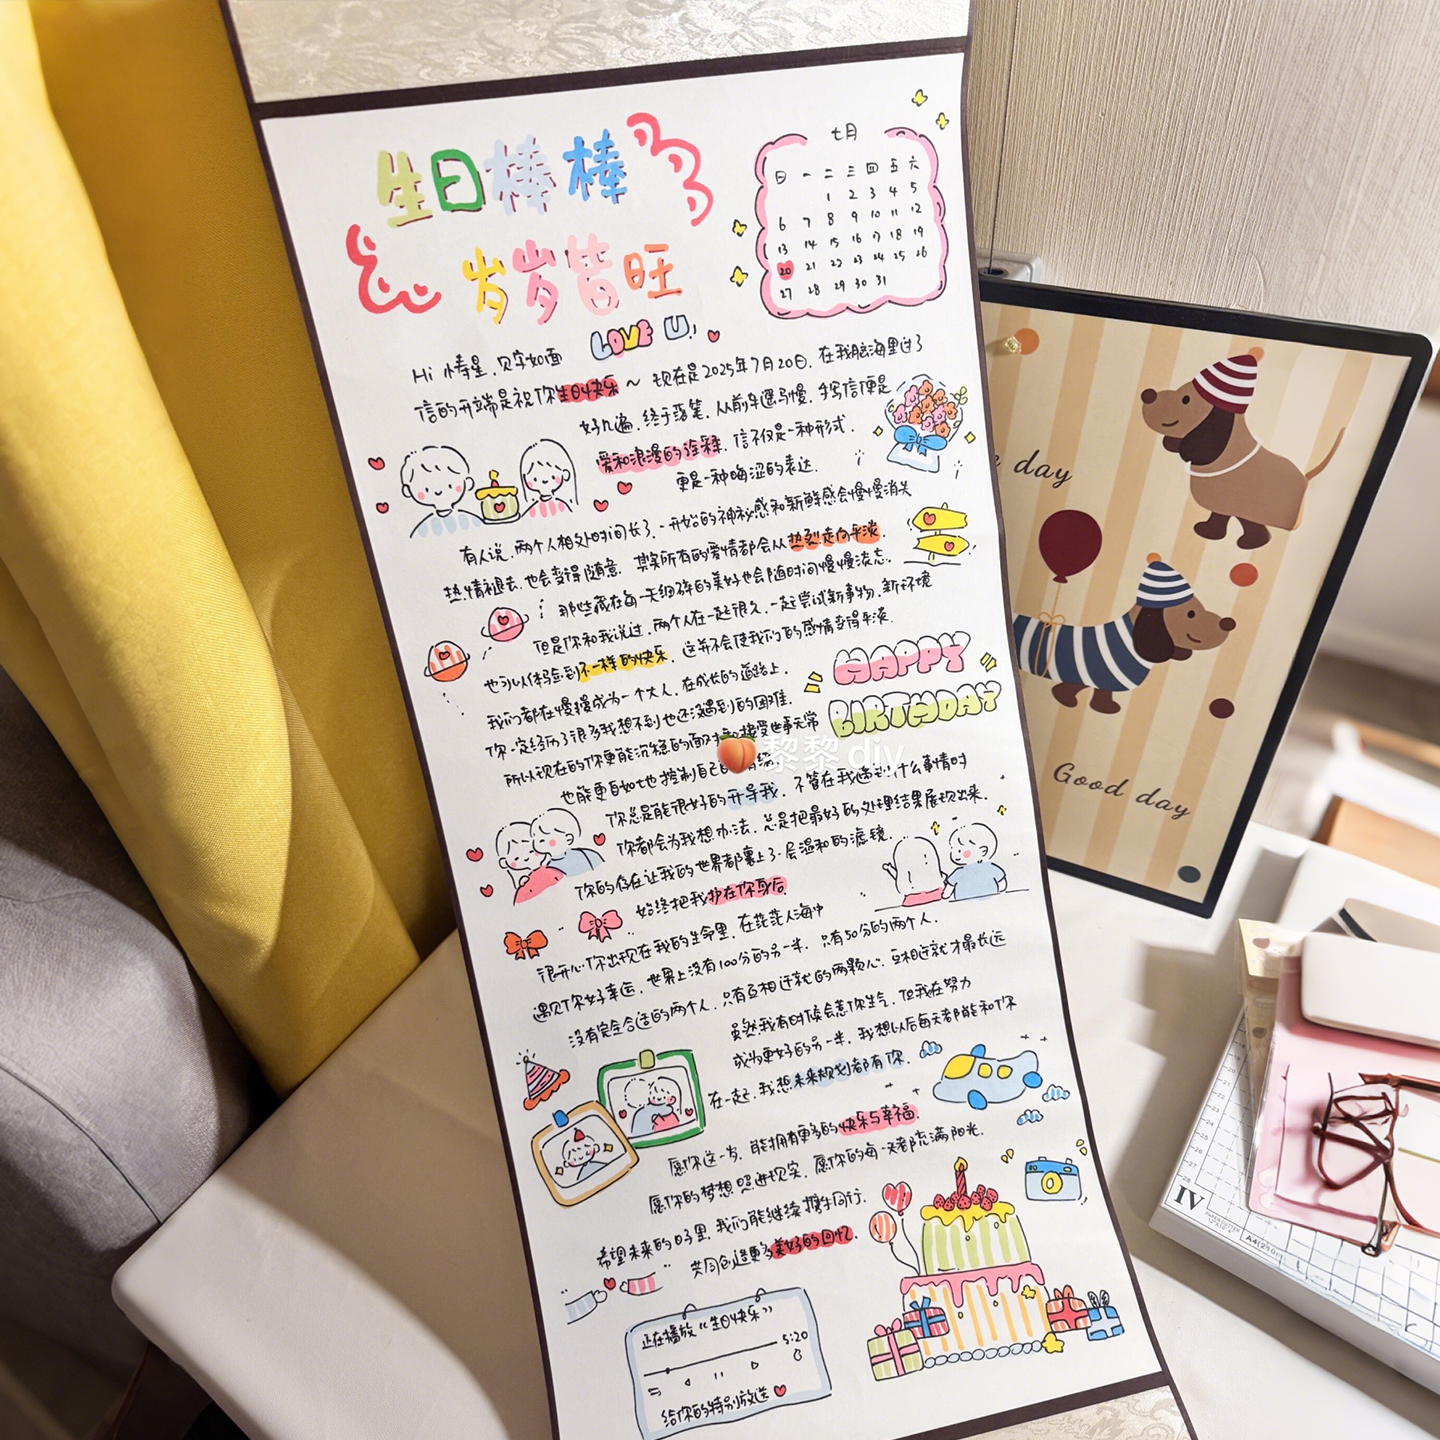 生日棒棒
岁岁皆旺
LOVE U!
七月
日 一 二 三 四 五 六
1 2 3 4 5
6 7 8 9 10 11 12
13 14 15 16 17 18 19
20 21 22 23 24 25 26
27 28 29 30 31
Hi 见字如面
信的开端是祝你生日快乐~ 现在是2025年7月20日，在我脑海里过了
好几遍，终于落笔，从前车遥马慢，手写信便是
爱和浪漫的诠释，信不仅是一种形式，
更是一种晦涩的表达。
有人说，两个人相处时间长了，一开始的神秘感和新鲜感会慢慢消失
热情褪去，也会变得随意，其实所有的爱情都会从热烈走向平淡，
那些藏在每一天细碎的美好也会随时间慢慢淡忘。
但是你和我说过，两个人在一起很久，一起尝试新事物，新环境
也可以体验到不一样的快乐，这并不会使我们的感情变得平淡。
我们都在慢慢成为一个大人，在成长的道路上，
你一定经历了很多我想不到也还没遇到的困难，
所以现在的你更能沉稳的面对和接受世事无常
也能更自如地控制自己的情绪
HAPPY
BIRTHDAY
🍑黎黎 diy
你总是能很好的开导我，不管在我遇到什么事情时
你都会为我想办法，总是把最好的处理结果展现出来，
你的存在让我的世界都裹上了一层温和的滤镜，
始终把我护在你身后
很开心你出现在我的生命里，在茫茫人海中
遇见你好幸运，世界上没有100分的另一半，只有50分的两个人，
没有完全合适的两个人，只有互相迁就的两颗心，互相迁就才最长远
虽然我有时候会惹你生气，但我在努力
成为更好的另一半，我想以后每天都能和你
在一起，我想未来规划都有你，
愿你这一岁，能拥有更多的快乐与幸福，
愿你的梦想照进现实，愿你的每一天都充满阳光，
希望未来的日子里，我们能继续携手同行，
共同创造更多美好的回忆，
正在播放“生日快乐”
5:20
给你的特别放送
day
Good day
IV